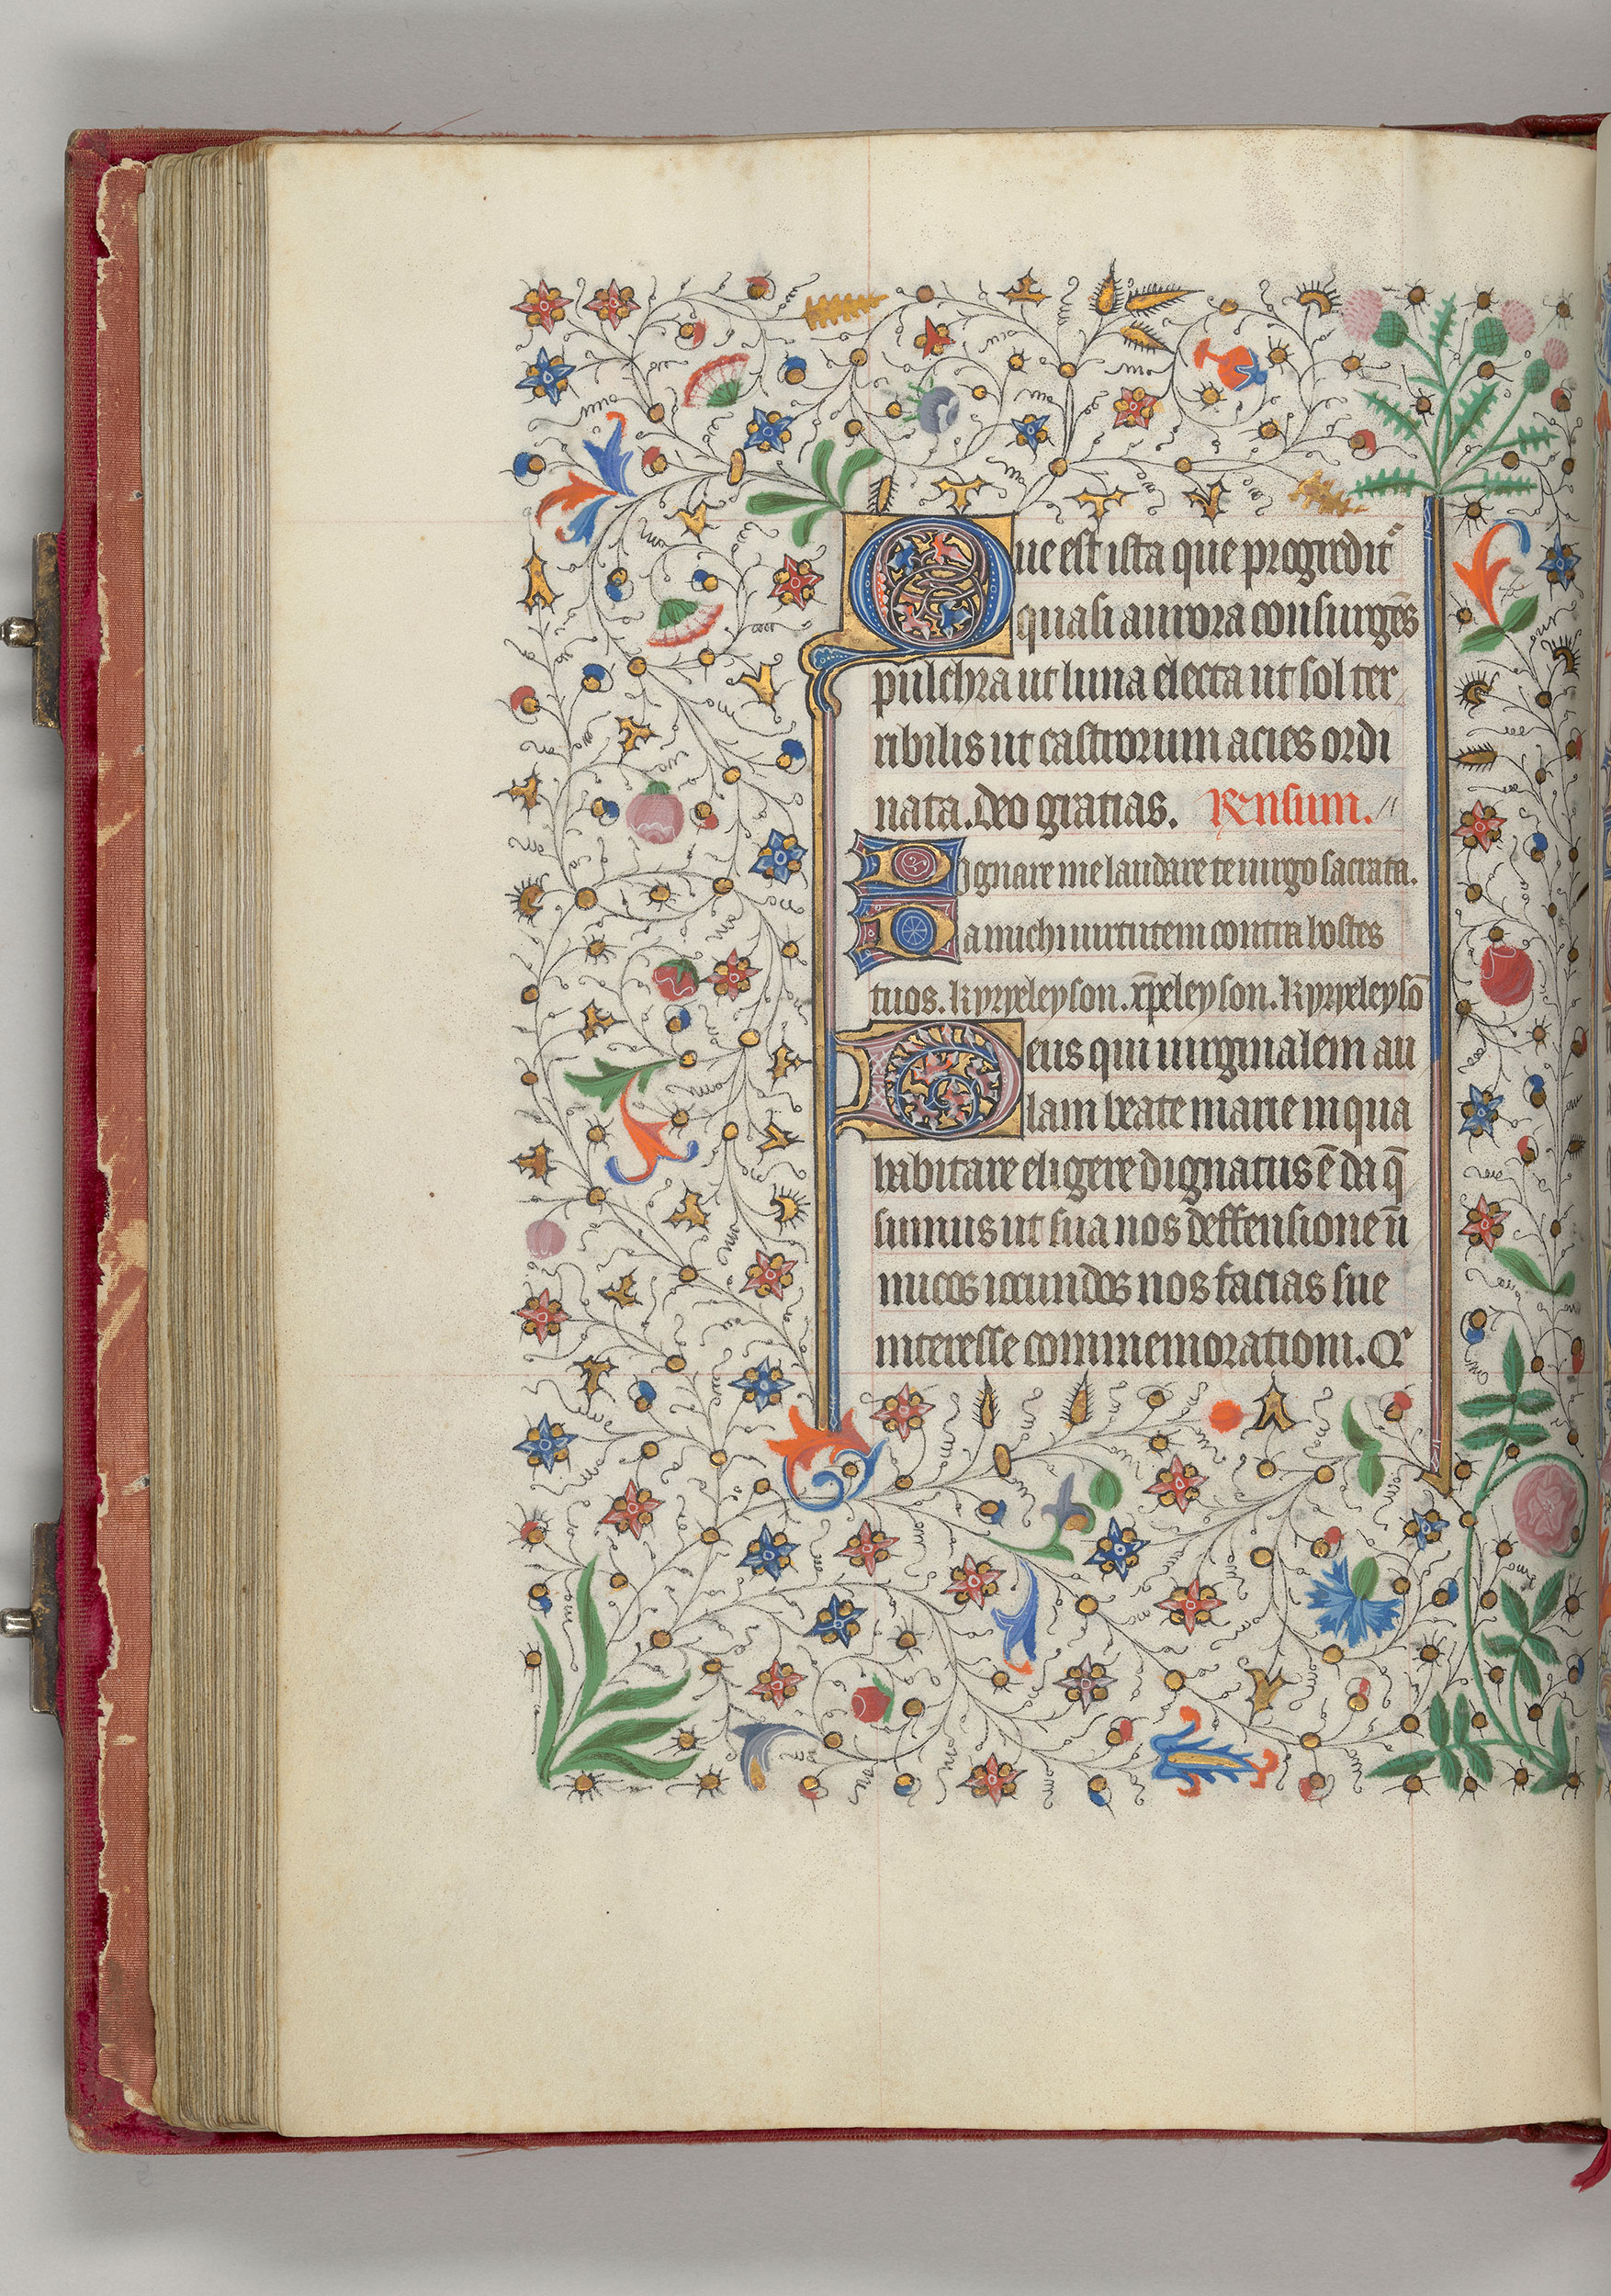 Que est ista que progredit᷑
quasi aurora consurgēs
pulchra ut luna electa ut sol ter
ribilis ut castrorum acies ordi
nata. Deo gratias. Rensum.
Dignare me laudare te uirgo sacrata.
Da michi uirtutem contra hostes
tuos. kyryeleyson. xp̄eleyson. kyryeleysō
Deus qui uirginalem au
lam beate marie in qua
habitare eligere dignatus ē da q̄
sumus ut sua nos deffensione ū
nucos iocundos nos facias sue
interesse commemorationi. Qͥ